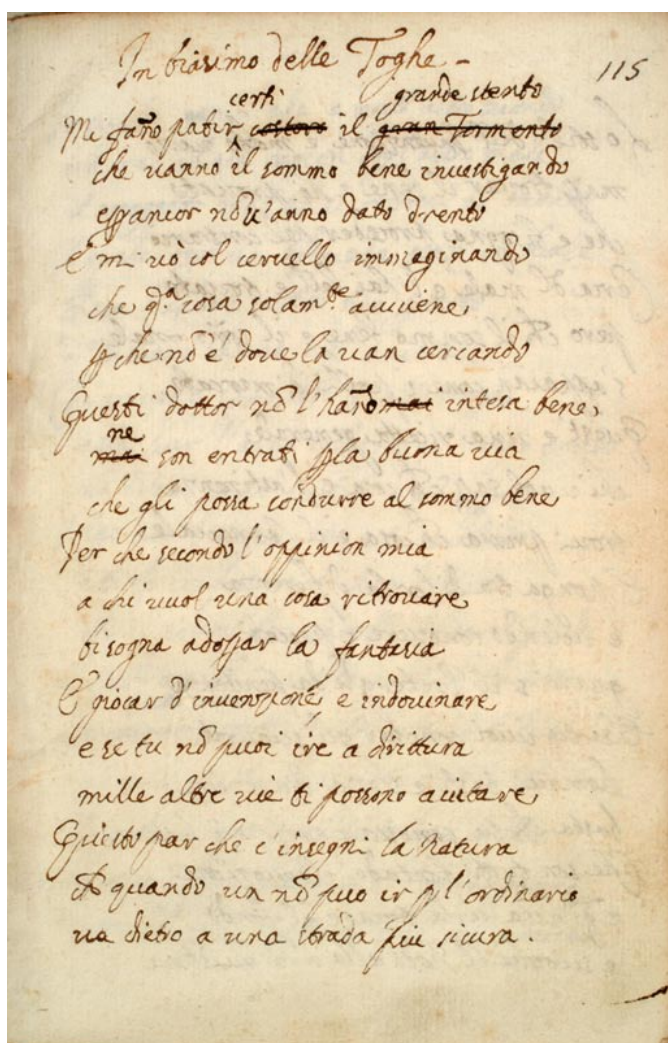 In biasimo delle Toghe -
115
certi grande stento
Mi fan̄o patir costoro il gran Tormento
che vanno il sommo bene investigando
e ancor nō v'anno dato drento
E mi vò col cervello immaginando
che q.ᵃ cosa solam.ᵗᵉ avviene,
ꝑche nō è dove la van cercando
Questi dottor nō l'han̄o mai intesa bene,
ne
mai son entrati ꝑ la buona via
che gli possa condurre al sommo bene
Per che secondo l'oppinion mia
a chi vuol una cosa ritrovare,
bisogna adoprar la fantasia
E giocar d'invenzione, e indovinare,
e se tu nō puoi ire a dirittura
mille altre vie ti possono aiutare,
Questo par che c'insegni la Natura
che quando un nō puo ir ꝑ l'ordinario
va dietro a una strada piu sicura.